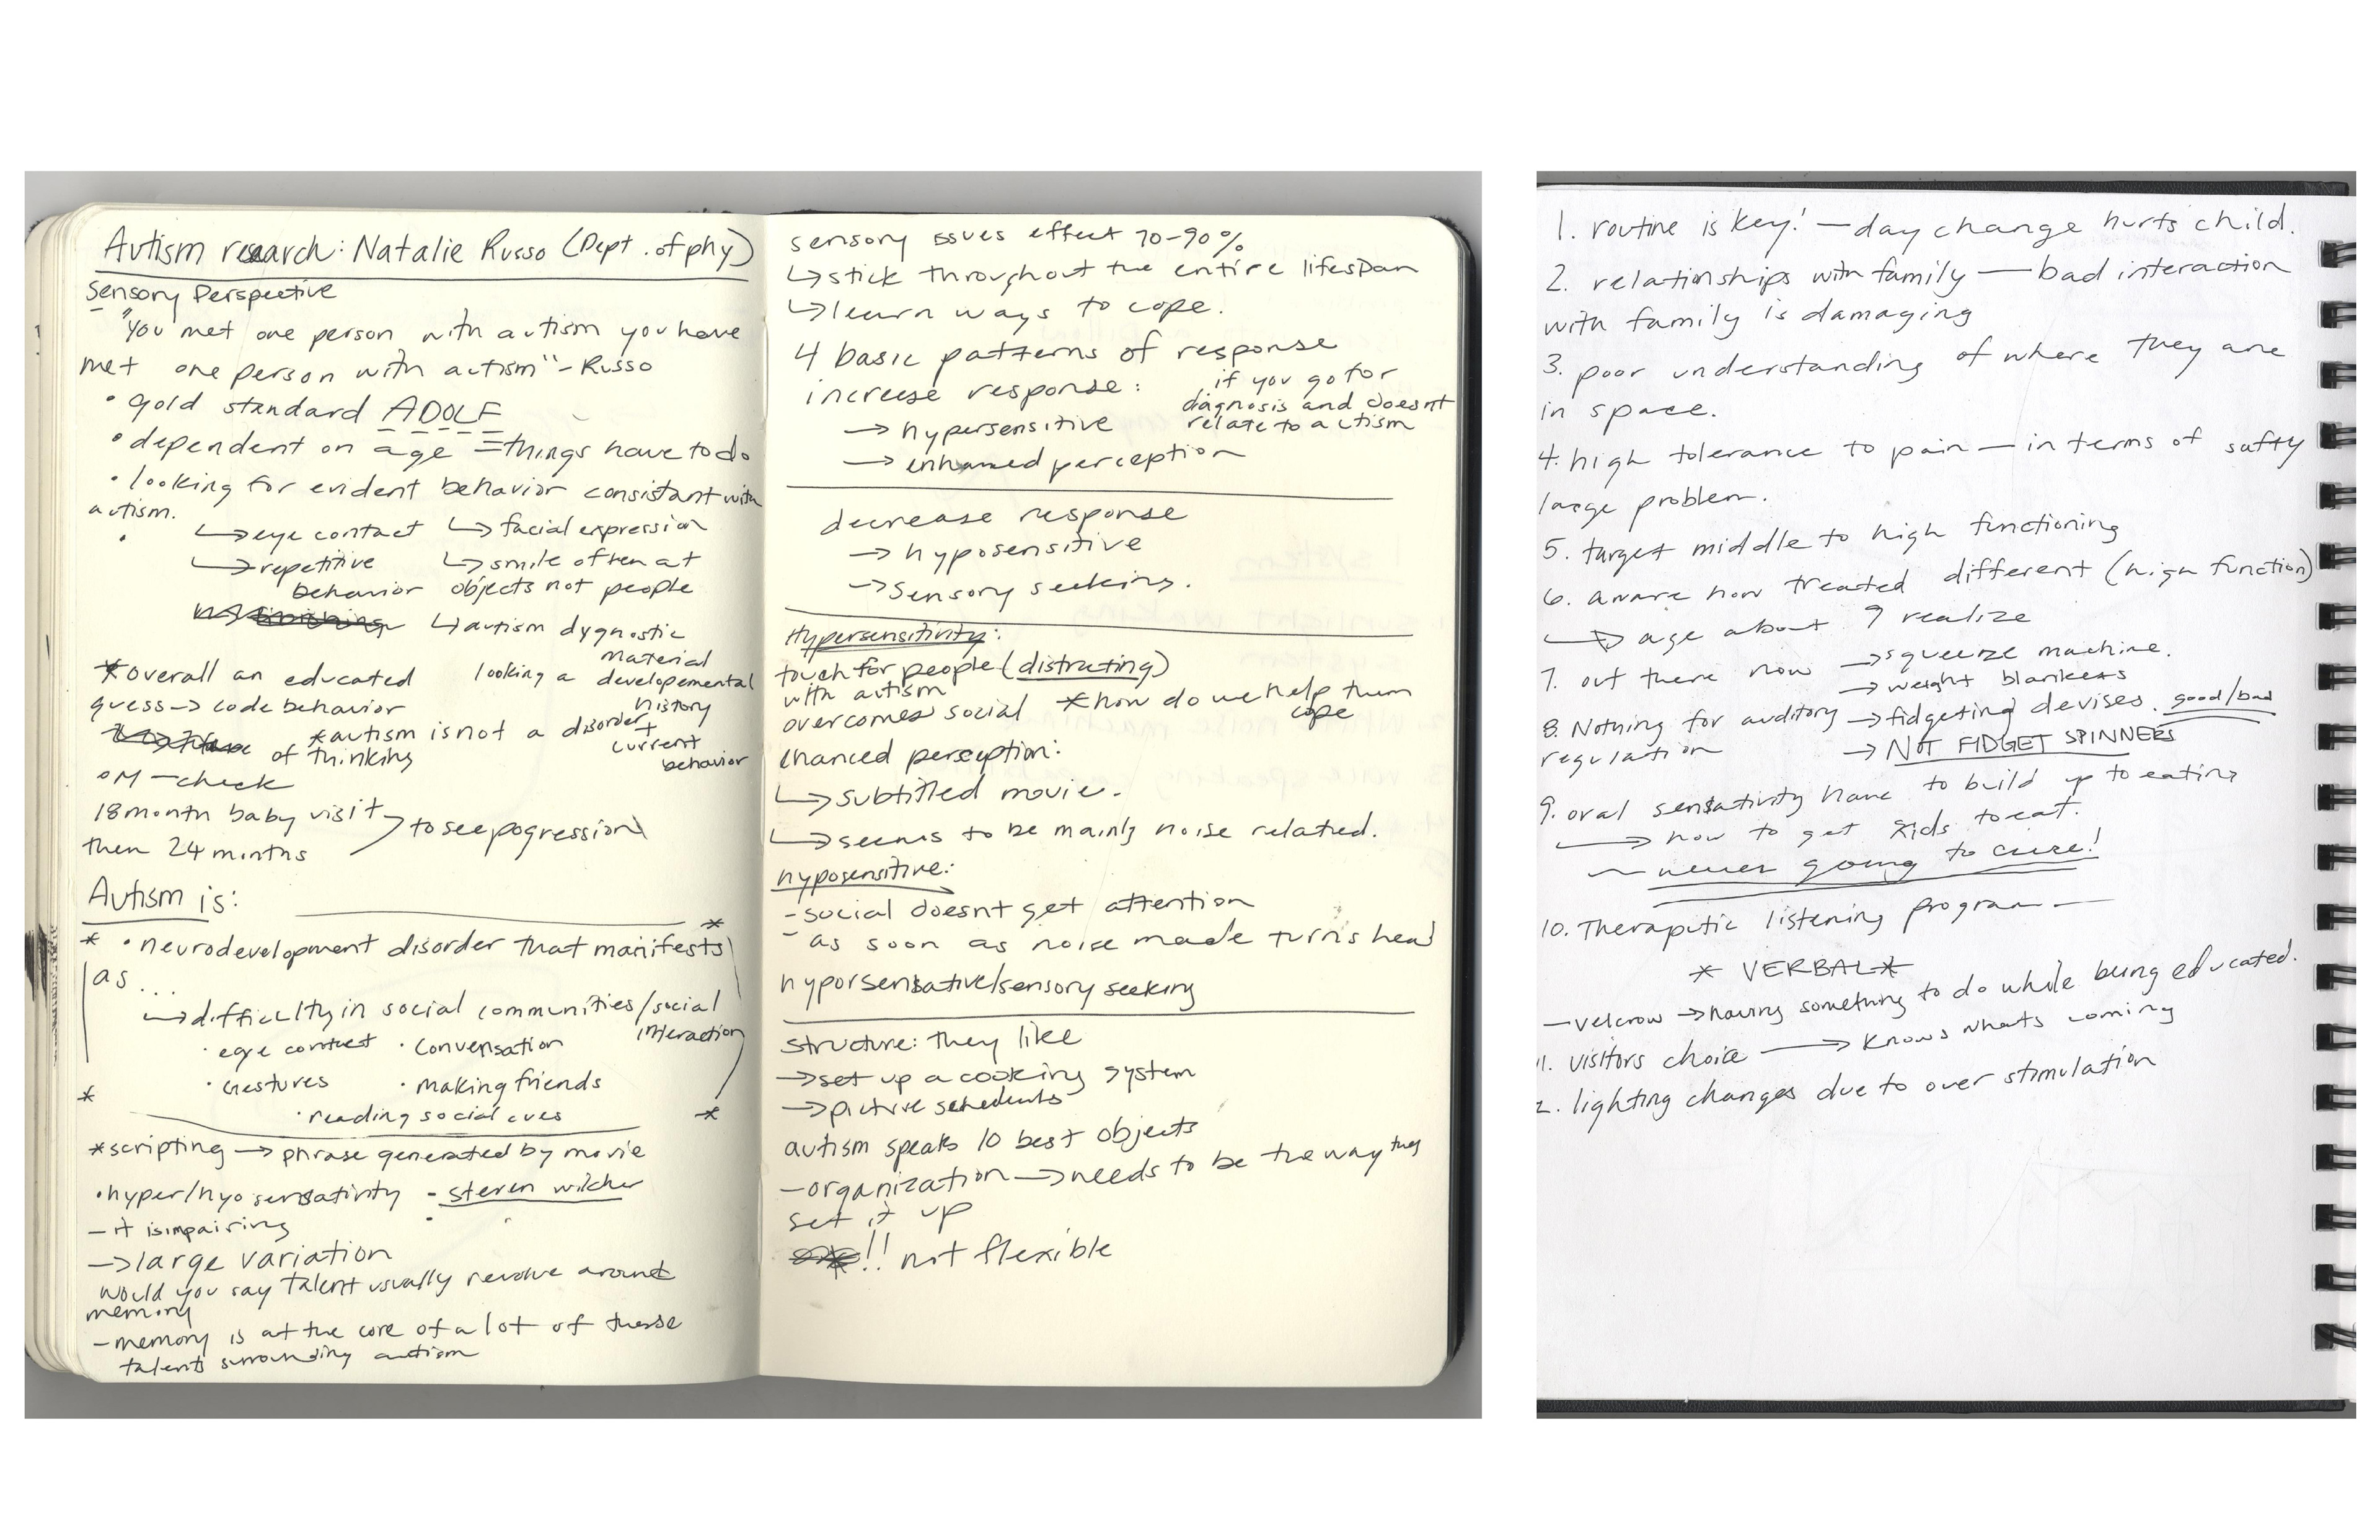 Autism research: Natalie Russo (Dept. of phy)
Sensory Perspective
"You met one person with autism you have
met one person with autism" - Russo
• gold standard ADOLF
• dependent on age = things have to do
• looking for evident behavior consistant with
autism.
↳ eye contact ↳ facial expression
↳ repetitive ↳ smile often at
behavior objects not people
↳ autism dygnostic
material
* overall an educated looking a developemental
guess → code behavior history
* autism is not a disorder +
of thinking current
behavior
M-check
18 month baby visit
then 24 months > to see pogression
Autism is:
* • neurodevelopment disorder that manifests *
as...
↳ difficulty in social communities/social
interaction
· eye contact · conversation
· Gestures · making friends
* · reading social cues *
* scripting → phrase generated by movie
• hyper/hyo sensativity - steven wilcher
- it is impairing
→ large variation
would you say talent usually revolve around
memory
- memory is at the core of a lot of these
talents surrounding autism
sensory issues effect 70-90%
↳ stick throughout the entire lifespan
↳ learn ways to cope.
4 basic patterns of response
increase response: if you go for
diagnosis and doesnt
→ hypersensitive relate to autism
→ enhanced perception
decrease response
→ hyposensitive
→ sensory seeking.
Hypersensitivity:
touch for people (distracting)
with autism
overcomes social * how do we help them
cope
enanced perception:
↳ subtitled movie.
↳ seems to be mainly noise related.
hyposensitive:
- social doesnt get attention
- as soon as noise made turns head
hyporsensative/sensory seeking
structure: they like
→ set up a cooking system
→ picture
autism speaks 10 best objects
- organization → needs to be the way they
set it up
!! not flexible
1. routine is key! — day change hurts child.
2. relationships with family — bad interaction
with family is damaging
3. poor understanding of where they are
in space.
4. high tolerance to pain — in terms of safty
large problem.
5. target middle to high functioning
6. aware how treated different (high function)
→ age about 9 realize
7. out there now → squeeze machine.
→ weight blankets
8. Nothing for auditory → fidgeting devises. good/bad
regulation → NOT FIDGET SPINNERS
9. oral sensativity have to build up to eating
→ how to get kids to eat.
~ never going to cure!
10. Theraputic listening program —
* VERBAL *
- velcrow → having something to do while being educated.
11. visitors choice → knows whats coming
2. lighting changes due to over stimulation